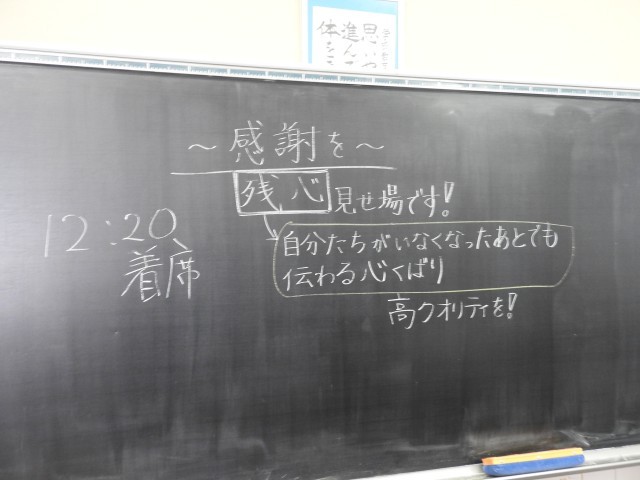 思いや
進んで
体を
～感謝を～
残心 見せ場です!
自分たちがいなくなったあとでも
伝わる心くばり
高クオリティを!
12:20
着席